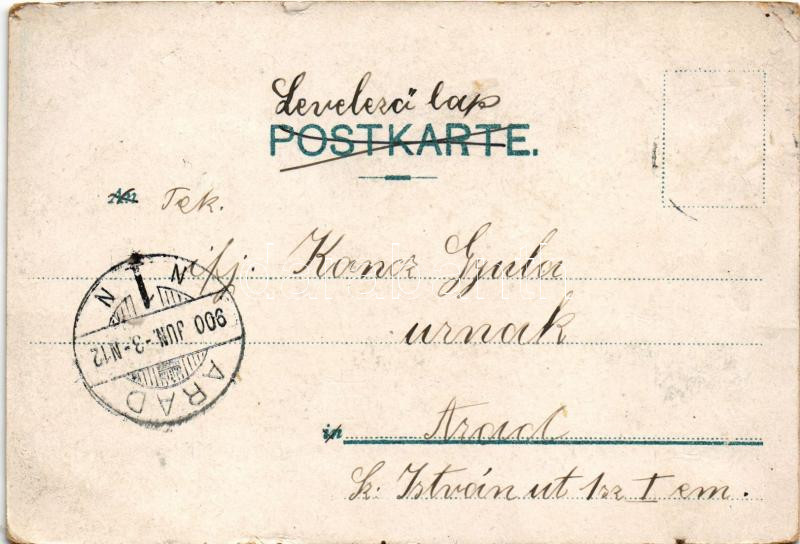 Levelező lap
POSTKARTE.
An Tek.
ifj. Koncz Gyula
urnak
in Arad
Sz. István ut 1 sz I em.
900 JUN.-3-N12
ARAD